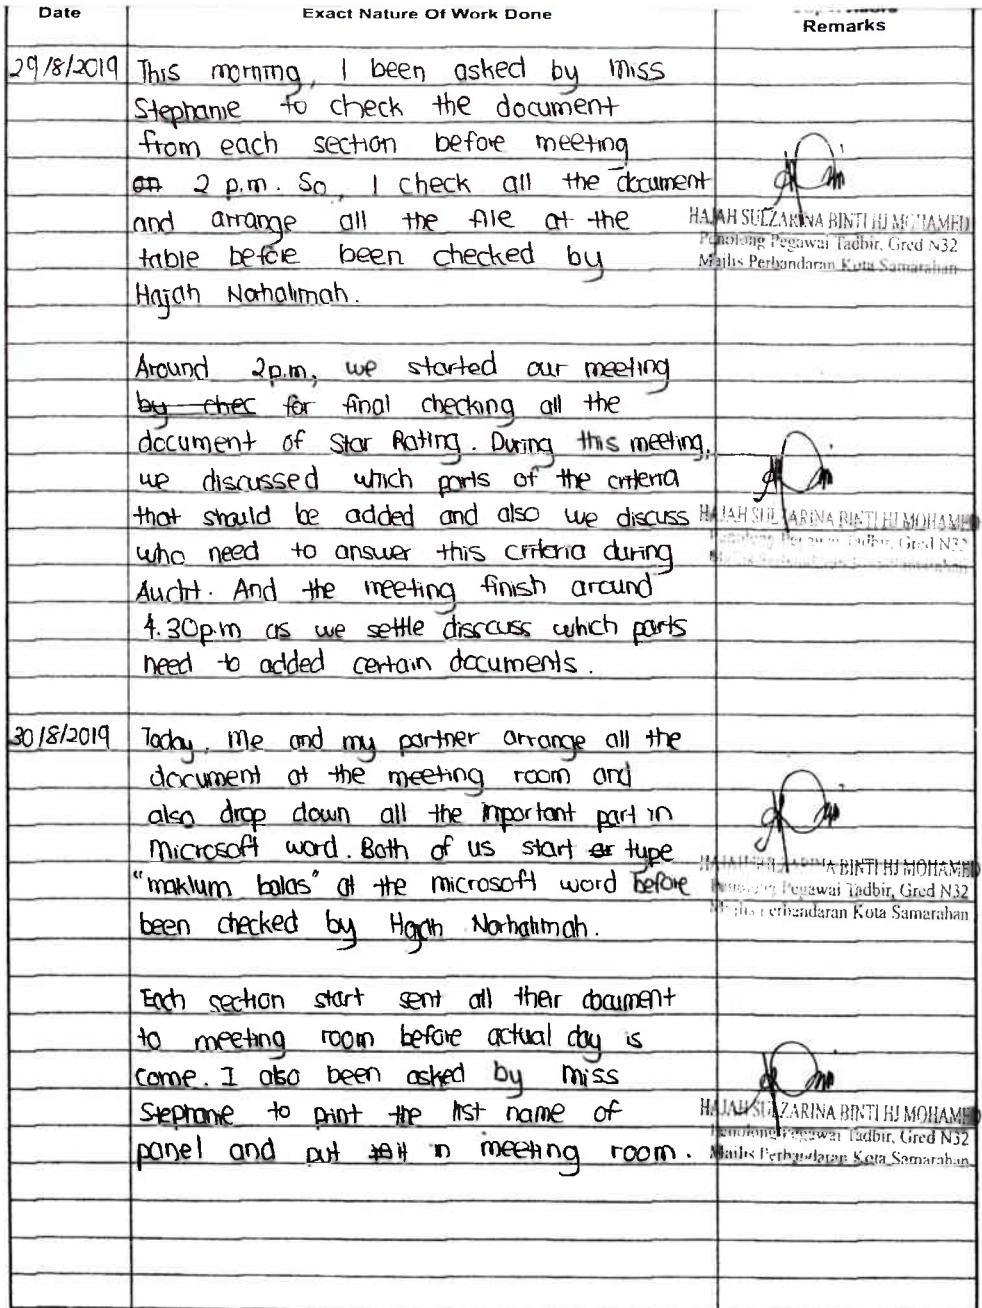 Date Exact Nature Of Work Done Remarks
29/8/2019 This morning, I been asked by Miss
Stephanie to check the document
from each section before meeting
on 2 p.m. So, I check all the document
and arrange all the file at the
table before been checked by
Hajah Norhalimah.
HAJAH SULZARINA BINTI HJ MOHAMED
Penolong Pegawai Tadbir, Gred N32
Majlis Perbandaran Kota Samarahan
Around 2p.m, we started our meeting
by chec for final checking all the
document of Star Rating. During this meeting,
we discussed which parts of the criteria
that should be added and also we discuss
who need to answer this criteria during
Audit. And the meeting finish around
4.30p.m as we settle disscuss which parts
need to added certain documents.
HAJAH SULZARINA BINTI HJ MOHAMED
Penolong Pegawai Tadbir, Gred N32
30/8/2019 Today, Me and my partner arrange all the
document at the meeting room and
also drop down all the important part in
Microsoft word. Both of us start type
"maklum balas" at the microsoft word before
been checked by Hajah Norhalimah.
HAJAH SULZARINA BINTI HJ MOHAMED
Penolong Pegawai Tadbir, Gred N32
Majlis Perbandaran Kota Samarahan
Each section start sent all their document
to meeting room before actual day is
come. I also been asked by Miss
Stephanie to print the list name of
panel and put it in meeting room.
HAJAH SULZARINA BINTI HJ MOHAMED
Penolong Pegawai Tadbir, Gred N32
Majlis Perbandaran Kota Samarahan